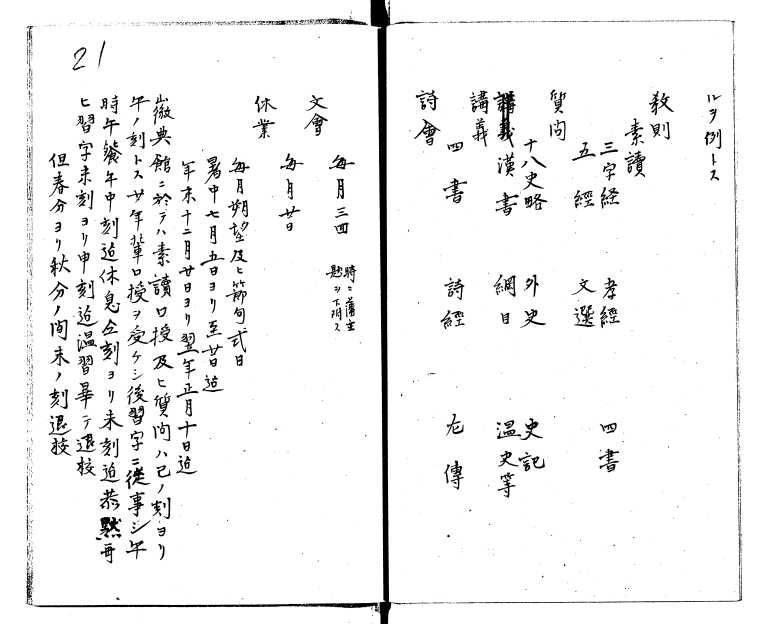 ルヲ例トス
教則
素讀
三字経 孝經 四書
五經 文選
質問
十八史略 外史 史記
漢書 綱目 温史等
講義
四書 詩經 左傳
詩會
21
毎月三四 時ニ藩主題ヲ下附ス
文會
毎月廿日
休業
毎月朔望及ヒ節句式日
暑中七月五日ヨリ至廿日迠
年末十二月廿日ヨリ翌年正月十日迠
徽典館ニ於テハ素讀口授及ヒ質問ハ巳ノ刻ヨリ
午ノ刻トス廿年輩口授ヲ受ケシ後習字ニ從事シ午
時午餐午中刻迠休息仝刻ヨリ未刻迠恭黙再
ヒ習字未刻ヨリ申刻迠温習畢テ退校
但春分ヨリ秋分ノ間未ノ刻退校